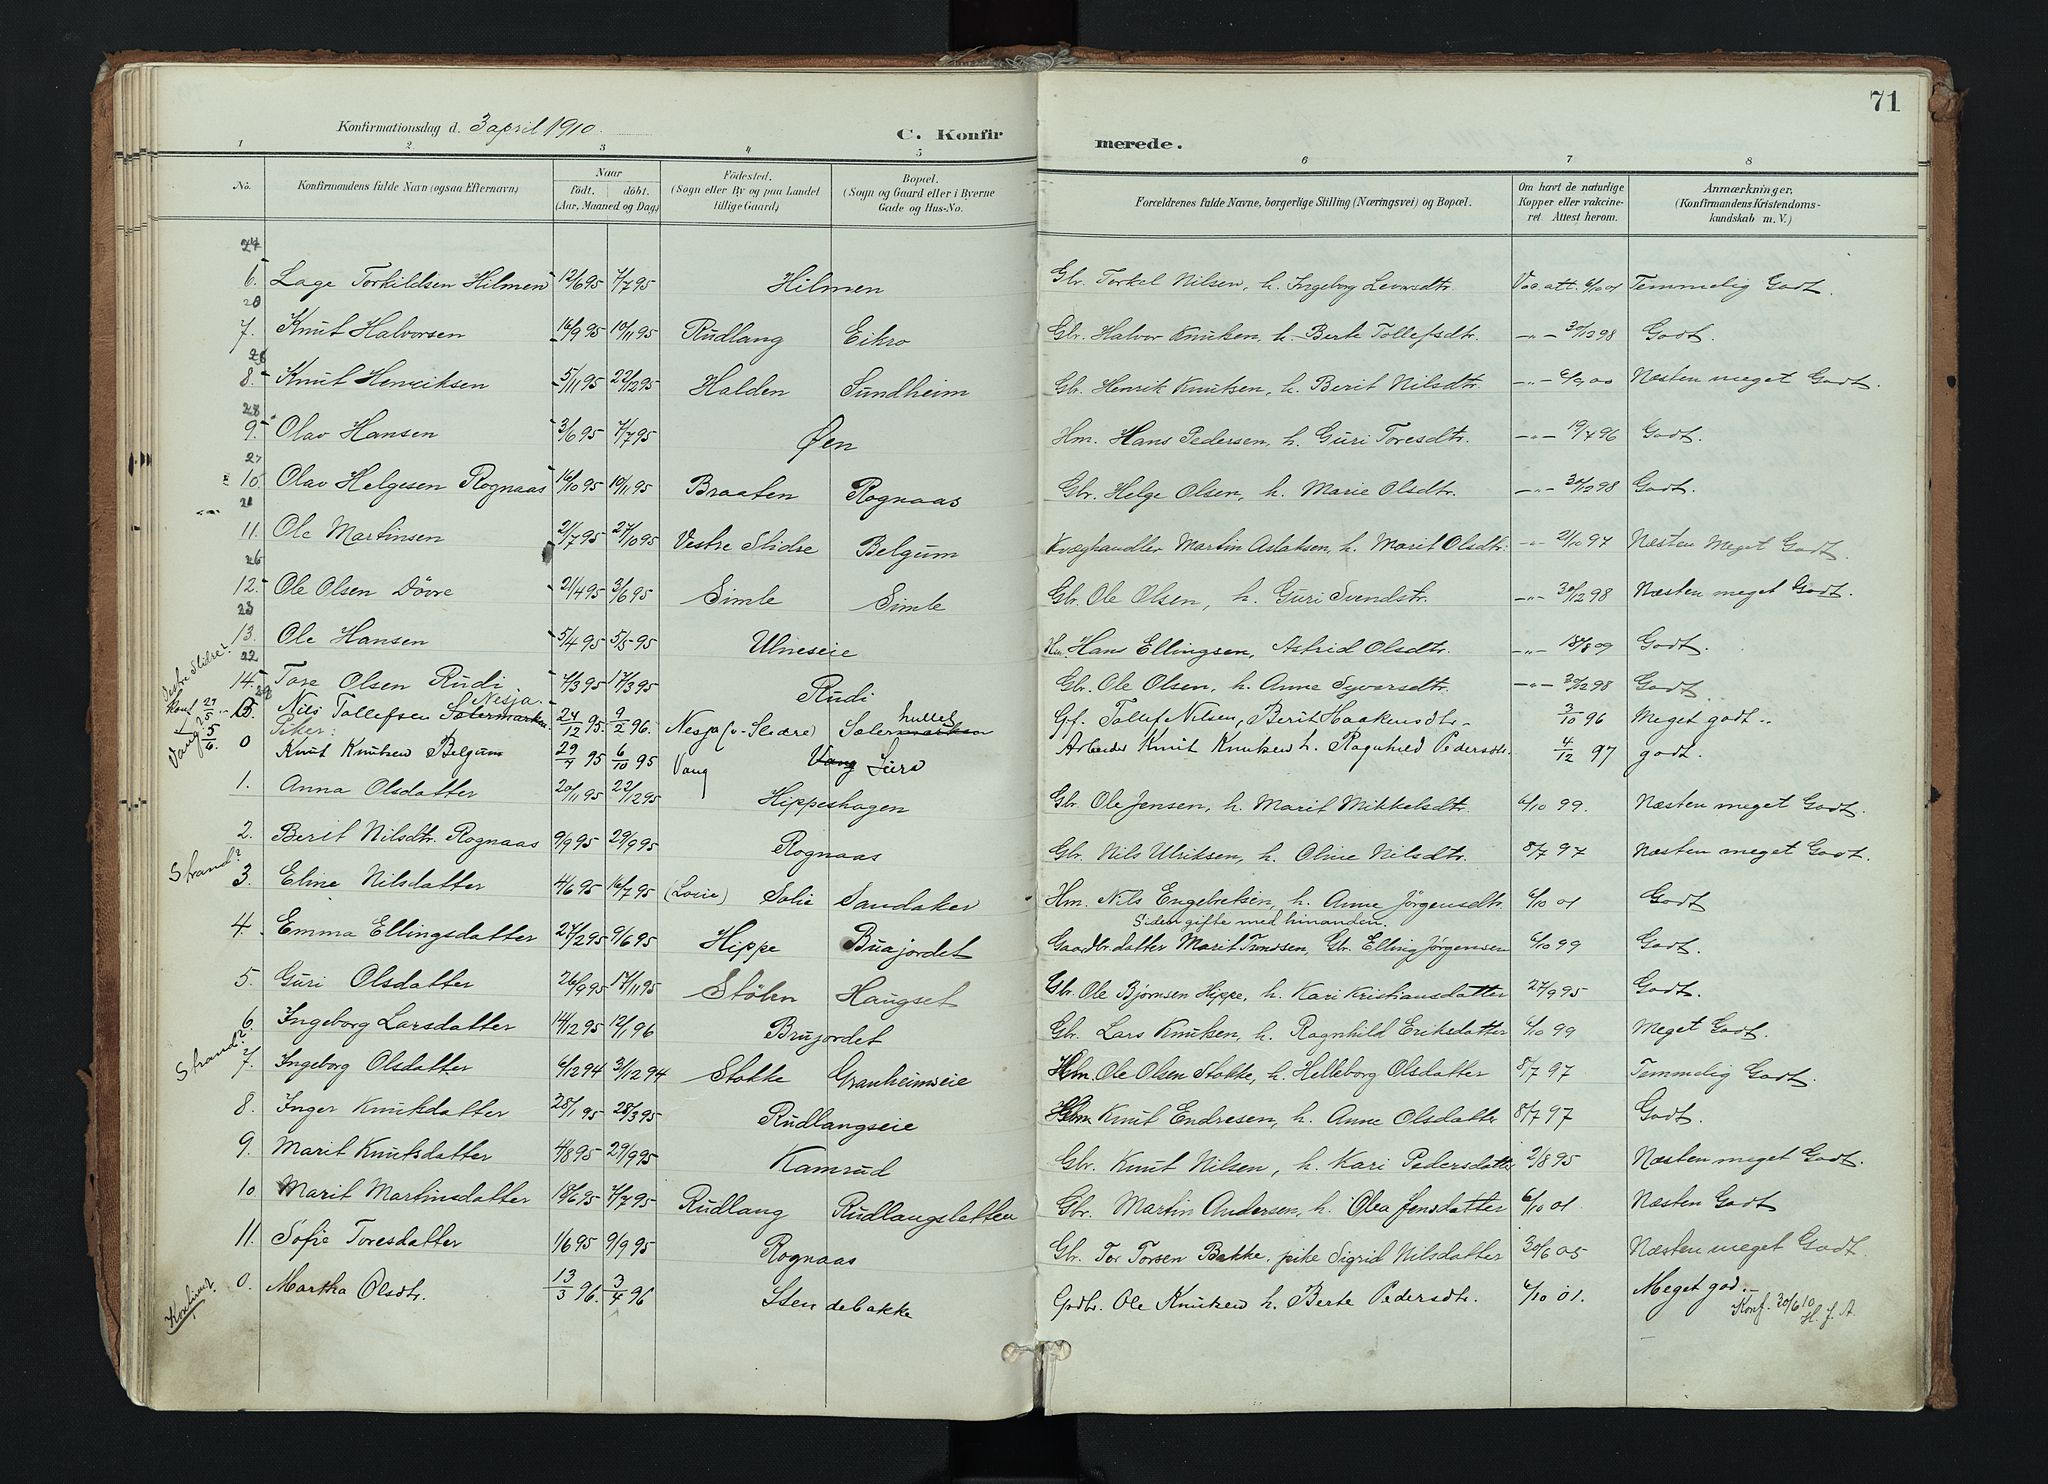 71
Konfirmationsdag d. 3 april 1910.
C. Konfirmerede.
1 2 3 4 5 6 7 8
No. Konfirmandens fulde Navn (ogsaa Efternavn) Naar födt. döbt. (Aar, Maaned og Dag) Födested. (Sogn eller By og paa Landet tillige Gaard) Bopæl. (Sogn og Gaard eller i Byerne Gade og Hus-No. Forældrenes fulde Navne, borgerlige Stilling (Næringsvei) og Bopæl. Om havt de naturlige Kopper eller vakcineret. Attest herom. Anmærkninger. (Konfirmandens Kristendomskundskab m. V.)
6. Lage Torkildsen Hilmen 12/6 95 7/7 95 Hilmen Gbr. Torkel Nilsen, h. Ingeborg Levorsdtr. Vac. att. 6/10 01 Temmelig Godt.
7. Knut Halvorsen 16/9 95 10/11 95 Rudlang Eikro Gbr. Halvor Knutsen, h. Berte Tollefsdtr. -„- 30/12 98 Godt.
8. Knut Henriksen 5/11 95 22/12 95 Halden Sundheim Gbr. Henrik Knutsen, h. Berit Nilsdtr. -„- 6/9 00 Næsten meget Godt.
9. Olav Hansen 3/6 95 7/7 95 Øen Hm. Hans Pedersen, h. Guri Toresdtr. -„- 19/7 96 Godt.
10. Olav Helgesen Rognaas 16/10 95 10/11 95 Braaten Rognaas Gbr. Helge Olsen, h. Marie Olsdtr. -„- 30/12 98 Godt.
11. Ole Martinsen 21/7 95 27/10 95 Vestre Slidre Belgum Kvæghandler Martin Aslaksen, h. Marit Olsdtr. -„- 21/10 97 Næsten Meget Godt.
12. Ole Olsen Dövre 21/4 95 3/6 95 Simle Simle Gbr. Ole Olsen, h. Guri Svendsdtr. -„- 30/12 98 Næsten meget Godt.
13. Ole Hansen 5/4 95 5/5 95 Ulneseie Hm. Hans Ellingsen, Astrid Olsdtr. -„- 18/8 09 Godt.
14. Tore Olsen Rudi 7/3 95 17/3 95 Rudi Gbr. Ole Olsen, h. Anne Syversdtr. -„- 30/12 98 Godt.
Vestre Slidre? Konf 29/5
15. Nils Tollefsen Nesja. 24/12 95. 9/2 96. Nesja (v. Slidre) Soler hullet Gf. Tollef Nilsen, Berit Haakensdtr. 3/10 96 Meget godt.
Piker:
Vang? 5/6 0 Knut Knutsen Belgum 29/7 95 6/10 95 Vang Vang Arbeider Knut Knutsen h. Ragnhild Pedersdtr. 4/12 97 godt.
1. Anna Olsdatter 20/11 95 22/12 95 Hippeshagen Gbr. Ole Jensen, h. Marit Mikkelsdtr. 6/10 99. Næsten meget Godt.
2. Berit Nilsdtr. Rognaas 9/9 95 29/9 95 Rognaas Gbr. Nils Ulriksen, h. Oline Nilsdtr. 8/7 97 Næsten meget Godt.
Strand? 3. Eline Nilsdatter 4/6 95 16/7 95 (Loeie) Solie Sandaker Hm. Nils Engebretsen, h. Anne Jörgensdtr. 6/10 01 Godt
Siden gifte med hinanden.
4. Emma Ellingsdatter 27/2 95 9/6 95 Hippe Buajordet Gaardbr.datter Marit Tundsen, Gbr. Elling Jörgensen 6/10 99 Godt.
5. Guri Olsdatter 26/9 95 17/11 95 Stölen Haugset Gbr. Ole Bjørnsen Hippe, h. Kari Kristiansdatter 27/9 95 Godt.
6. Ingeborg Larsdatter 14/12 95 12/1 96 Brujordet Gbr. Lars Knutsen, h. Ragnhild Eriksdatter 6/10 99 Meget Godt.
Strand? 7. Ingeborg Olsdatter 6/12 94 31/12 94 Stokke Granheimseie Hm. Ole Olsen Stokke, h. Helleborg Olsdatter 8/7 97 Temmelig Godt.
8. Inger Knutsdatter 28/1 95 28/3 95 Rudlangseie Hm Knut Endresen, h. Anne Olsdatter 8/7 97 Godt.
9. Marit Knutsdatter 4/8 95 29/9 95 Kamrud Gbr. Knut Nilsen, h. Kari Pedersdatter 2/8 95 Næsten meget Godt.
10 Marit Martinsdatter 18/6 95 7/7 95 Rudlang Rudlangsletten Gbr. Martin Andersen, h. Olea Jensdatter 6/10 01 Næsten Godt
11. Sofie Toresdatter 1/6 95 9/9 95 Rognaas Gbr. Tor Torsen Bakke, pike Sigrid Nilsdatter 30/6 05 Næsten meget Godt.
0. Martha Olsdtr. 13/3 96. 3/4 96 Stendebakke Gndbr. Ole Knutsen h. Berte Pedersdtr. 6/10 01. Meget god.
Konf. 30/6 10 H. f. A.